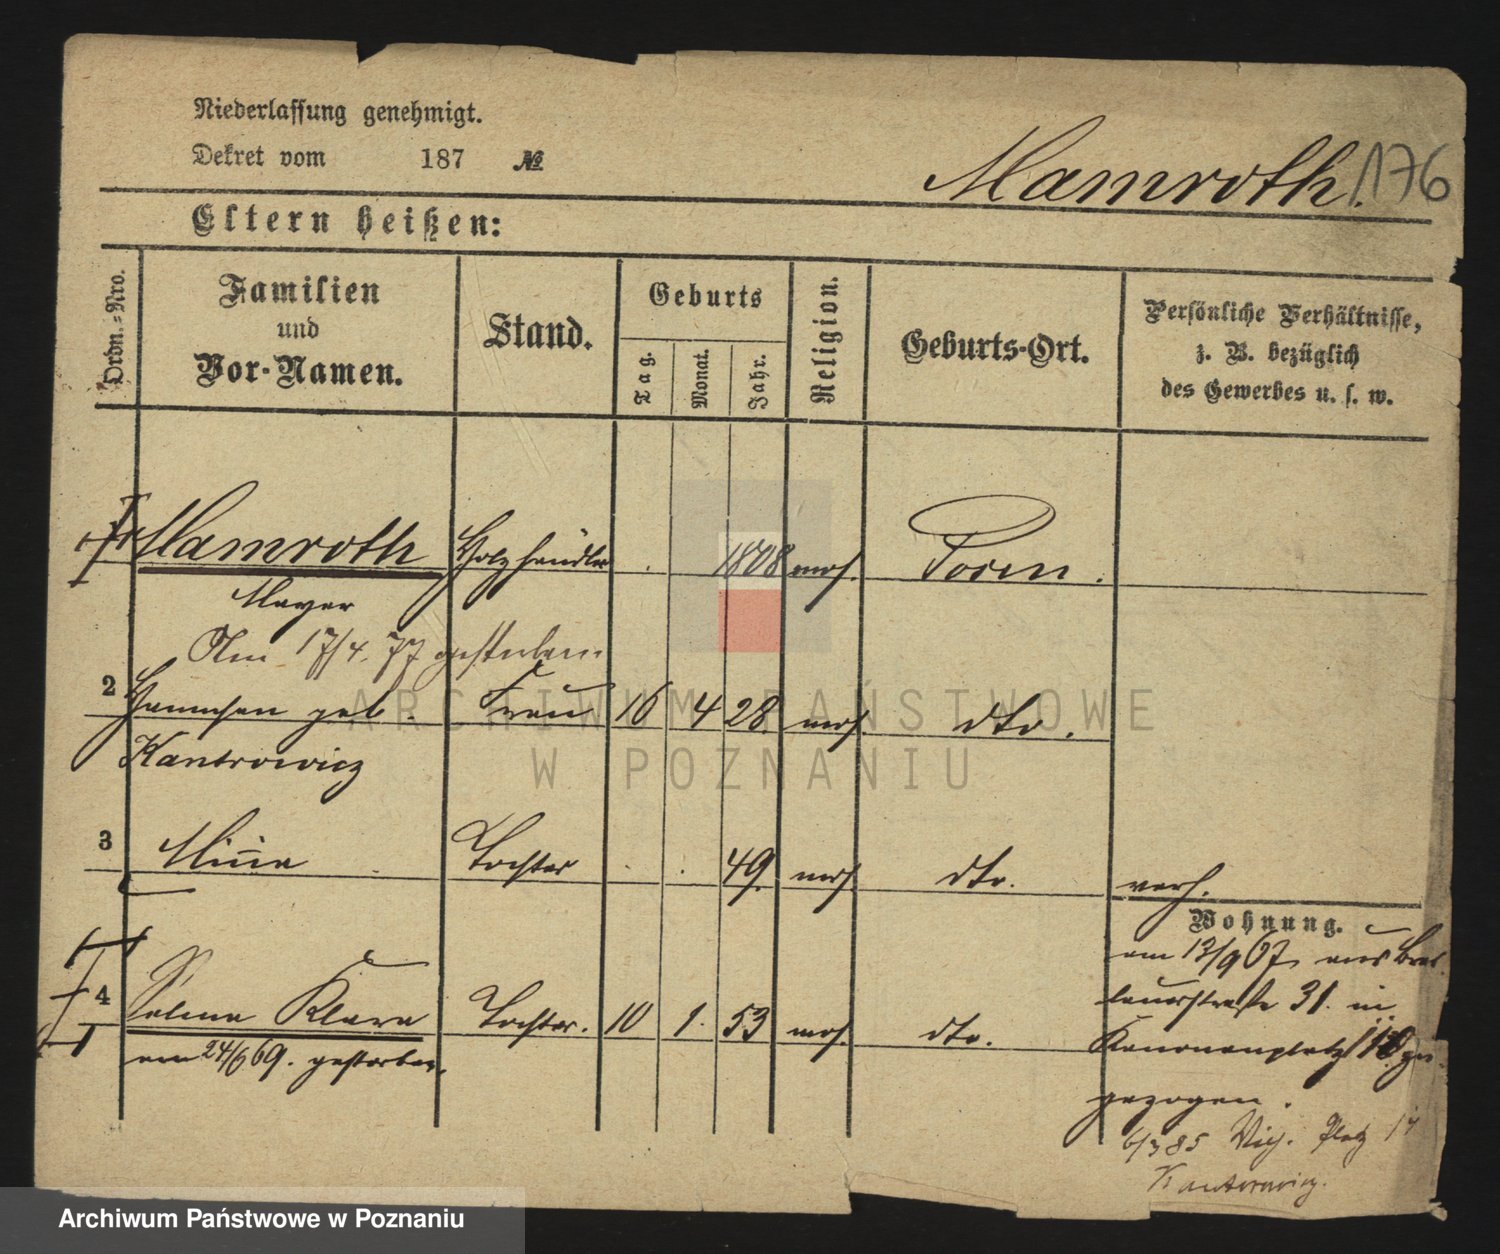 Niederlassung genehmigt.
Dekret vom 187 №
Mamroth. 176
Eltern heißen:
Ordn.-Nro.
Familien
und
Vor-Namen.
Stand.
Geburts
Tag.
Monat.
Jahr.
Religion.
Geburts-Ort.
Persönliche Verhältnisse,
z. B. bezüglich
des Gewerbes u. s. w.
Mamroth Holzhändler 1808 mos. Posen.
Mayer
Am 17/4. 77 gestorben
2 geb. Frau 16 4 28. mos. dto.
Kantrowicz
3 Mina Tochter 49. mos. dto. verh.
Wohnung.
am 13/9 67 aus Bres-
lauerstraße 31. in
4 Selma Klara Tochter. 10 1. 53 mos. dto.
Kanonenplatz zu-
am 24/6 69. gestorben.
gezogen.
6/3 85 Platz
Kantorowicz.
ARCHIWUM PAŃSTWOWE
W POZNANIU
Archiwum Państwowe w Poznaniu